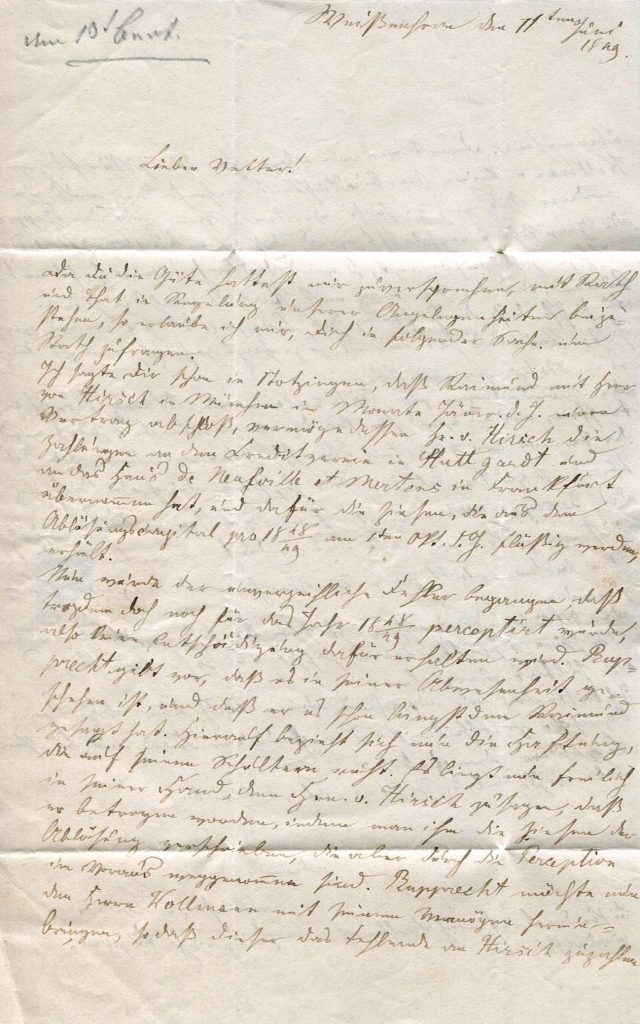 Weißenhorn den 11ten Juni
1849.
Lieber Vetter!
Da du die Güte hattest mir zuversprechen, mit Rath
und That in Regelung unserer Angelegenheiten beizu-
stehen, so erlaube ich mir, dich in folgender Sache um
Rath zufragen.
Ich sagte dir schon in Stotzingen, daß Raimund mit Herr
von Hirsch in München im Monate Jäner d. J. einen
Vertrag abschloß, vermöge dessen Hr. v. Hirsch die
Zahlungen an dem Creditverein in Stuttgardt und
an das Haus de Neufville et Mertens in Frankfurt
übernommen hat, und dafür die Zinsen, die aus dem
Ablösungscapital pro 1848/49 am 1ten Okt. d. J. flüßig werden,
erhält.
Nun wurde der unverzeihliche Fehler begangen, daß
trozdem doch noch für das Jahr 1848/49 perceptirt wurde,
also keine Entschädigung dafür erhalten wird. Rup-
precht gibt vor, daß es in seiner Abwesenheit ge-
schehen ist, und daß er es schon längst dem Raimund
gesagt hat. Hierauf bezieht sich nun die Haftung,
die auf seinen Schultern ruht. Es liegt nun freilich
in seiner Hand, dem Hrn. v. Hirsch zu sagen, daß
er betrogen worden, indem man ihm die Zinsen der
Ablösung verschrieben, die aber durch die Perception
im Voraus weggenommen sind. Rupprecht möchte nun
den Herrn Kollmann mit seinem Vermögen herein-
bringen, so daß dieser das fehlende an Hirsch zuzahlen